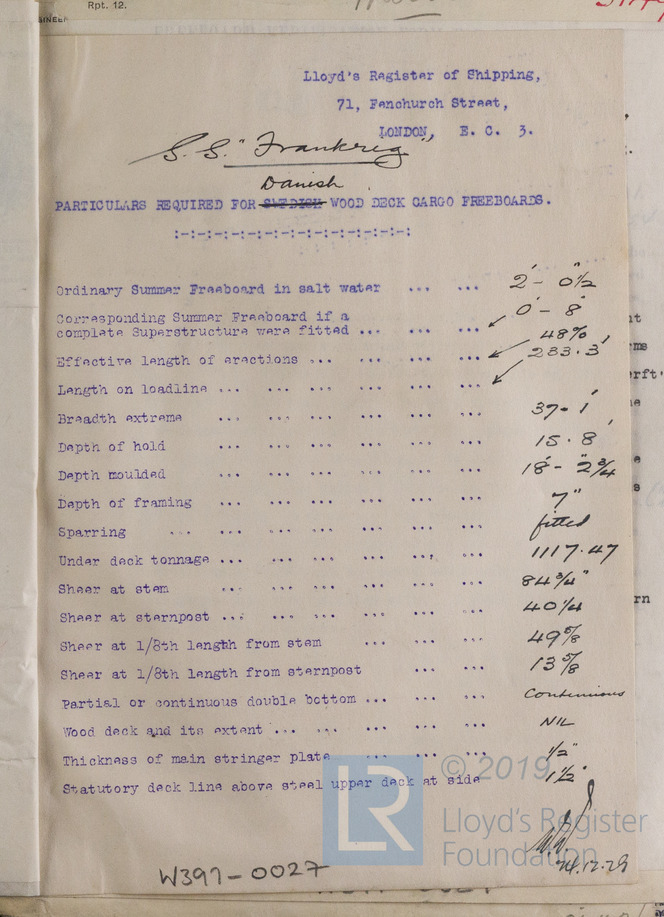 Rpt. 12.
GINEER
Lloyd's Register of Shipping,
71, Fenchurch Street,
LONDON, E. C. 3.
S.S. "Frankrig"
Danish
PARTICULARS REQUIRED FOR SWEDISH WOOD DECK CARGO FREEBOARDS.
:-:-:-:-:-:-:-:-:-:-:-:-:-:-:
Ordinary Summer Freeboard in salt water ... ... 2' - 0 1/2"
Corresponding Summer Freeboard if a
complete Superstructure were fitted ... ... ... 0' - 8"
Effective length of erections ... ... ... ... 48%
Length on loadline ... ... ... ... ... ... 283.3'
Breadth extreme ... ... ... ... ... ... 37.1'
Depth of hold ... ... ... ... ... ... 15.8'
Depth moulded ... ... ... ... ... ... 18' - 2 3/4"
Depth of framing ... ... ... ... ... ... 7"
Sparring ... ... ... ... ... ... ... fitted
Under deck tonnage ... ... ... ... ... ... 1117.47
Sheer at stem ... ... ... ... ... ... 84 3/4"
Sheer at sternpost ... ... ... ... ... ... 40 1/4
Sheer at 1/8th length from stem ... ... ... 49 5/8
Sheer at 1/8th length from sternpost ... ... 13 5/8
Partial or continuous double bottom ... ... ... Continuous
Wood deck and its extent ... ... ... ... ... NIL
Thickness of main stringer plate ... ... ... 1/2"
Statutory deck line above steel upper deck at side 1 1/2"
© 2019
LR
Lloyd's Register
Foundation
24.12.29
W397-0027